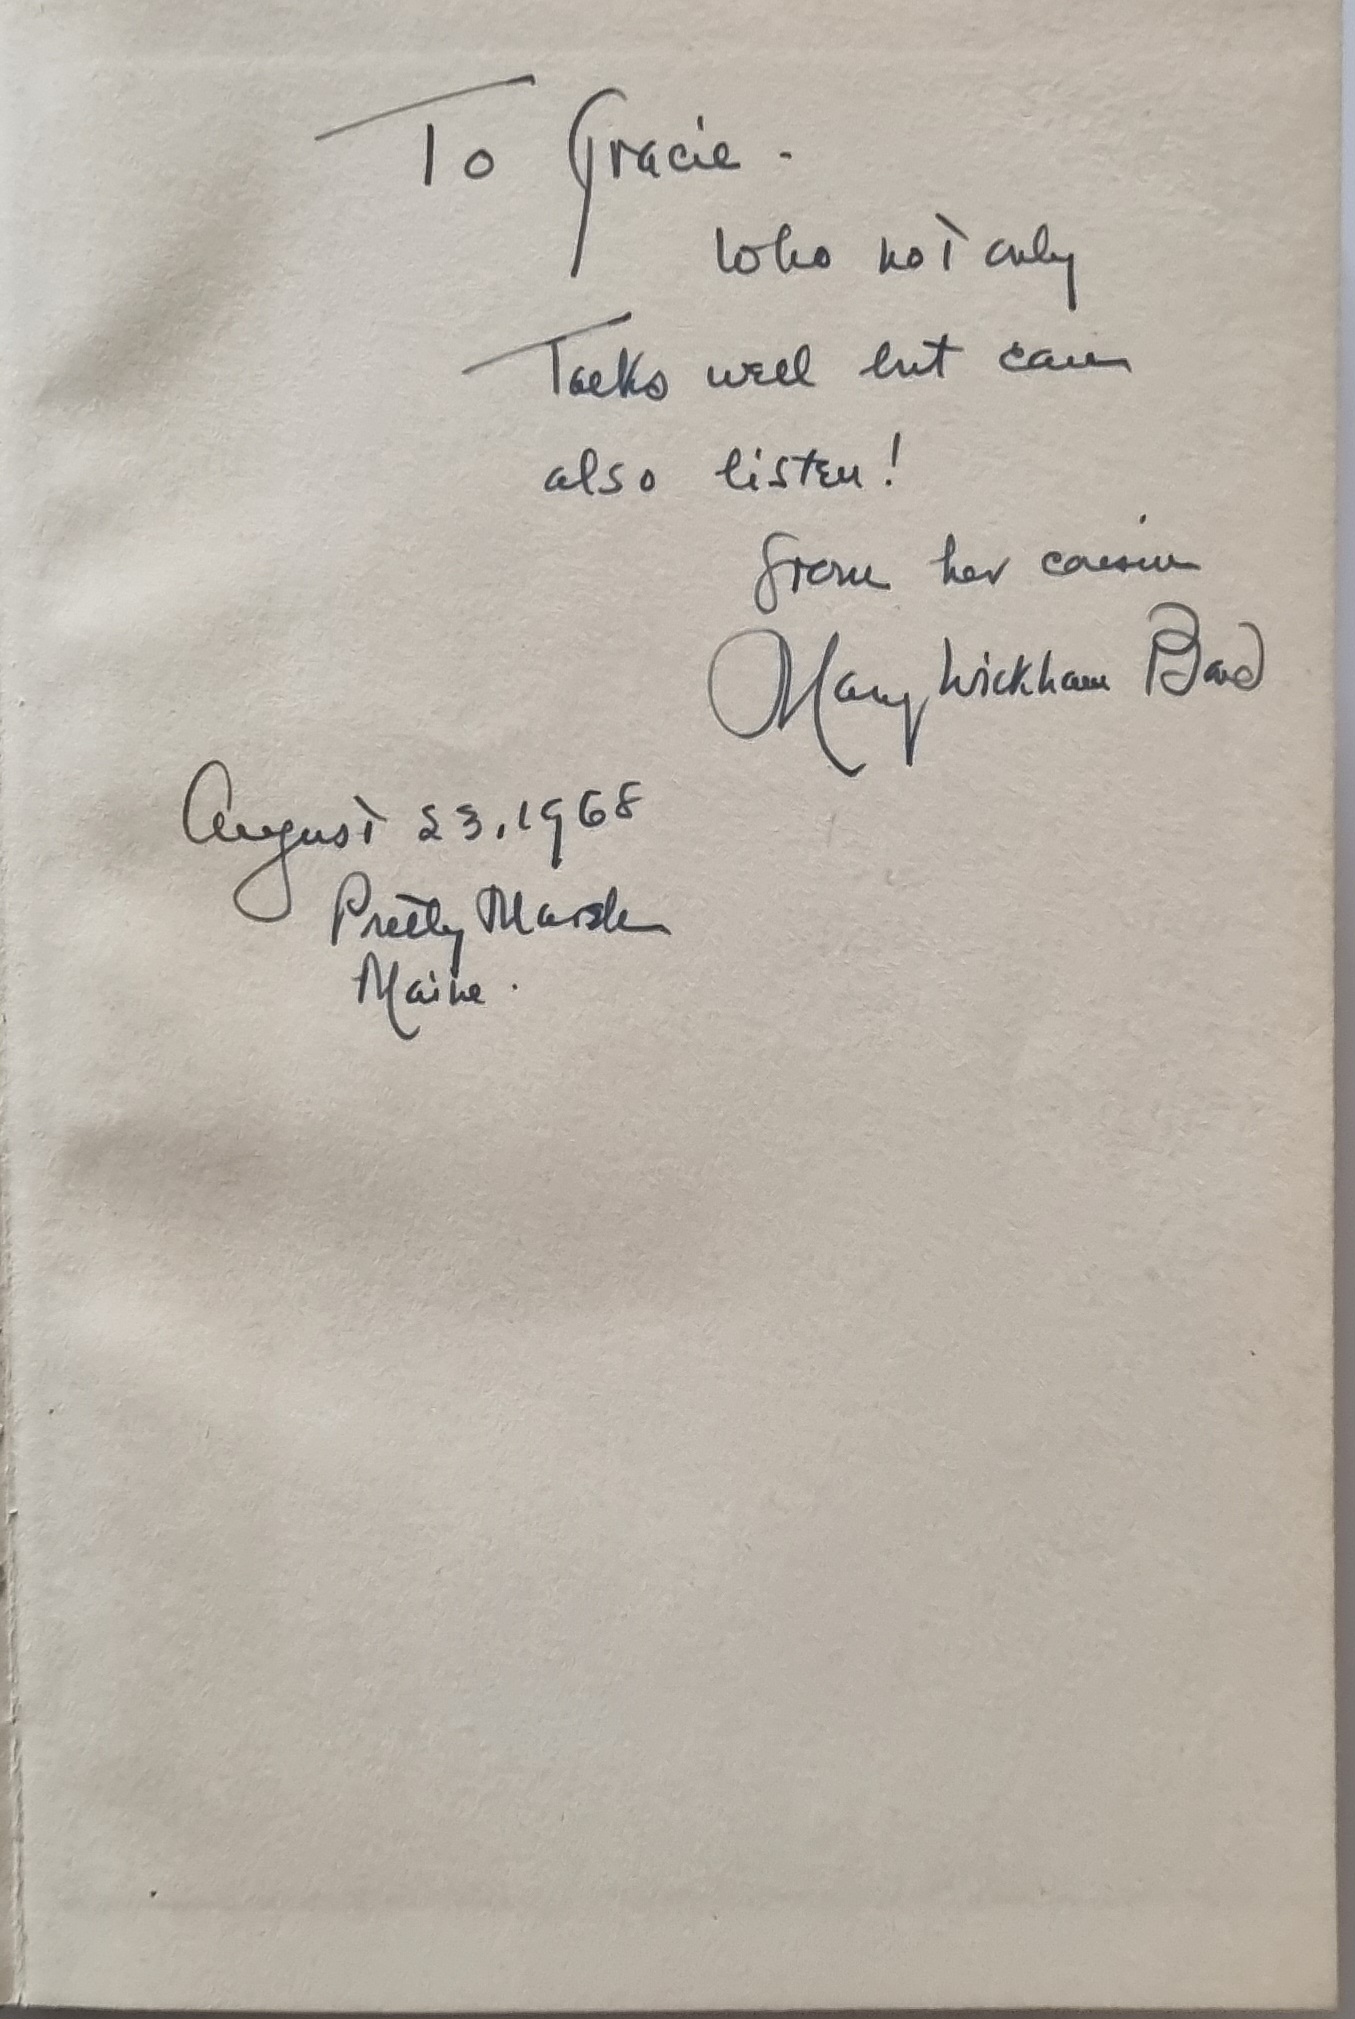 To Gracie -
who not only
Talks well but can
also listen!
from her cousin
Mary Wickham Bond
August 23, 1968
Pretty Marsh
Maine.